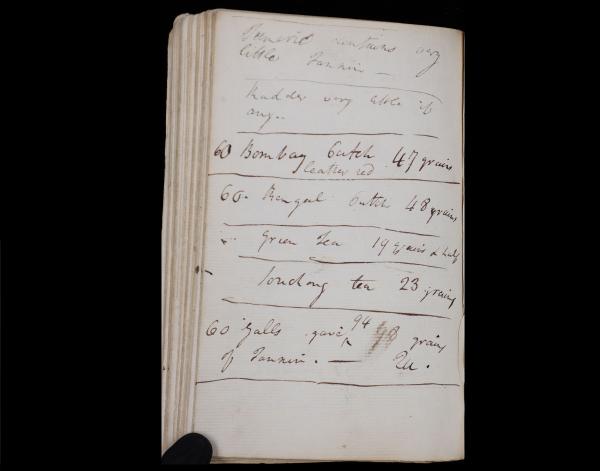 Tumeric contains very
little Tannin —
Madder very little if
any..
60 Bombay Cutch 47 grains
leather red
60. Bengal Cutch 48 grains
Green Tea 19 grains & half
Souchong tea 23 grains
60 Galls gave 94 grains
of Tannin. — Qu.